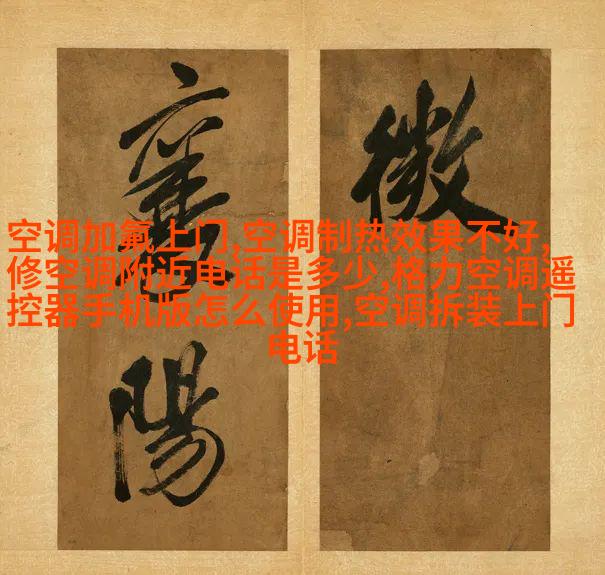 微
襄陽
空调加氟上门,空调制热效果不好,
修空调附近电话是多少,格力空调遥
控器手机版怎么使用,空调拆装上门
电话